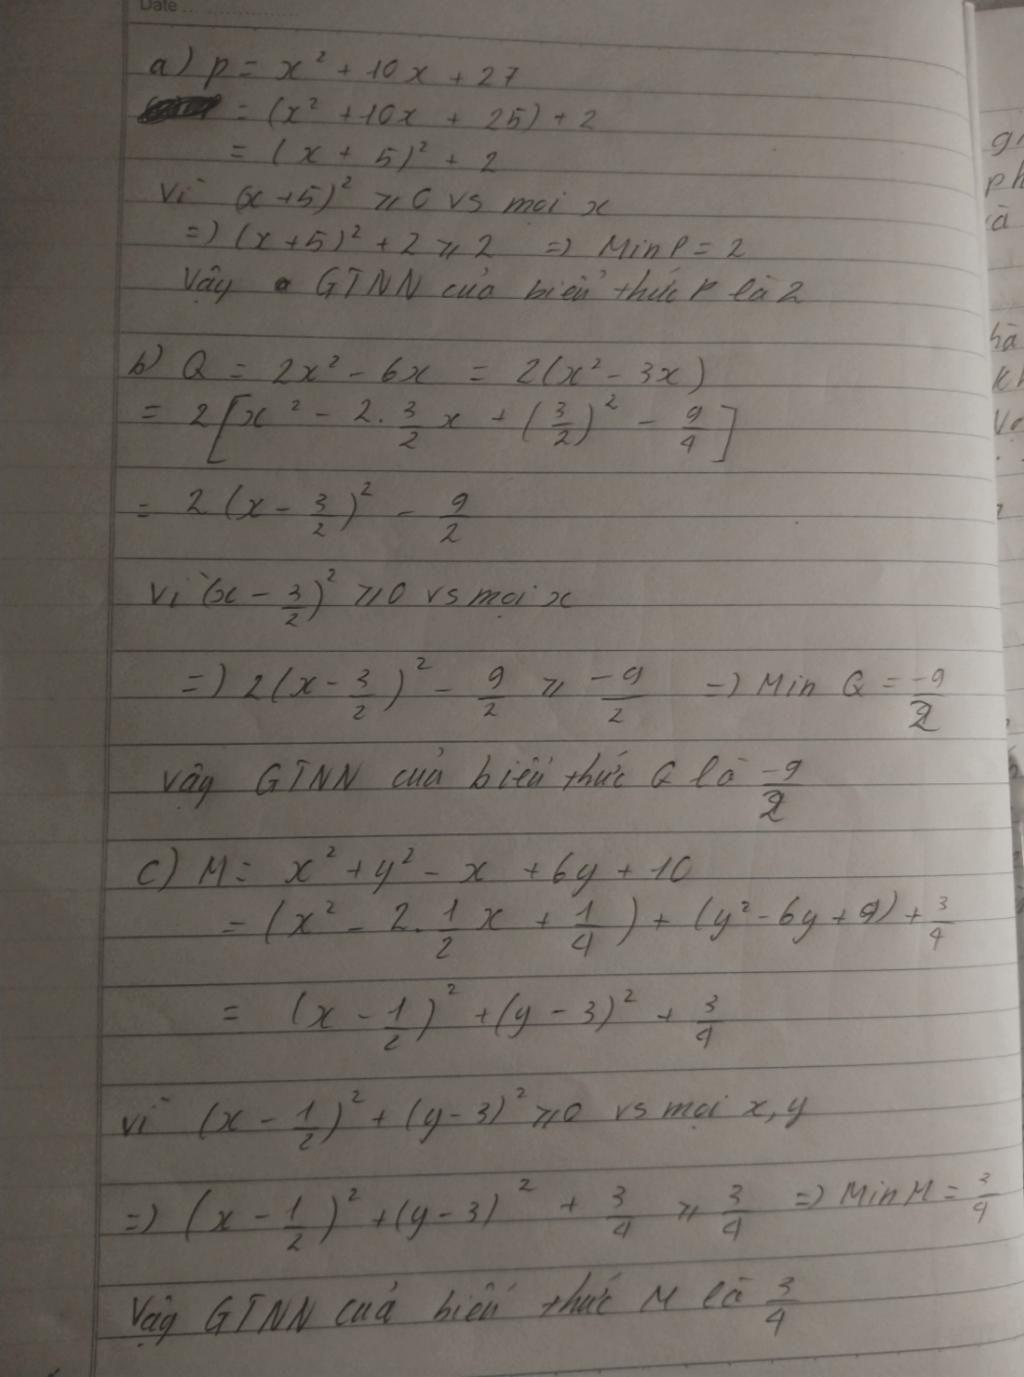 Date
a) P = x² + 10x + 27
= (x² + 10x + 25) + 2
= (x + 5)² + 2
Vì (x+5)² ≥ 0 vs mọi x
=) (x+5)² + 2 ≥ 2 =) Min P = 2
Vậy GTNN của biểu thức P là 2
b) Q = 2x² - 6x = 2(x² - 3x)
= 2[x² - 2. 3/2 x + (3/2)² - 9/4]
= 2(x - 3/2)² - 9/2
Vì (x - 3/2)² ≥ 0 vs mọi x
=) 2(x - 3/2)² - 9/2 ≥ -9/2 =) Min Q = -9/2
Vậy GTNN của biểu thức Q là -9/2
c) M = x² + y² - x + 6y + 10
= (x² - 2. 1/2 x + 1/4) + (y² - 6y + 9) + 3/4
= (x - 1/2)² + (y - 3)² + 3/4
Vì (x - 1/2)² + (y - 3)² ≥ 0 vs mọi x, y
=) (x - 1/2)² + (y - 3)² + 3/4 ≥ 3/4 =) Min M = 3/4
Vậy GTNN của biểu thức M là 3/4